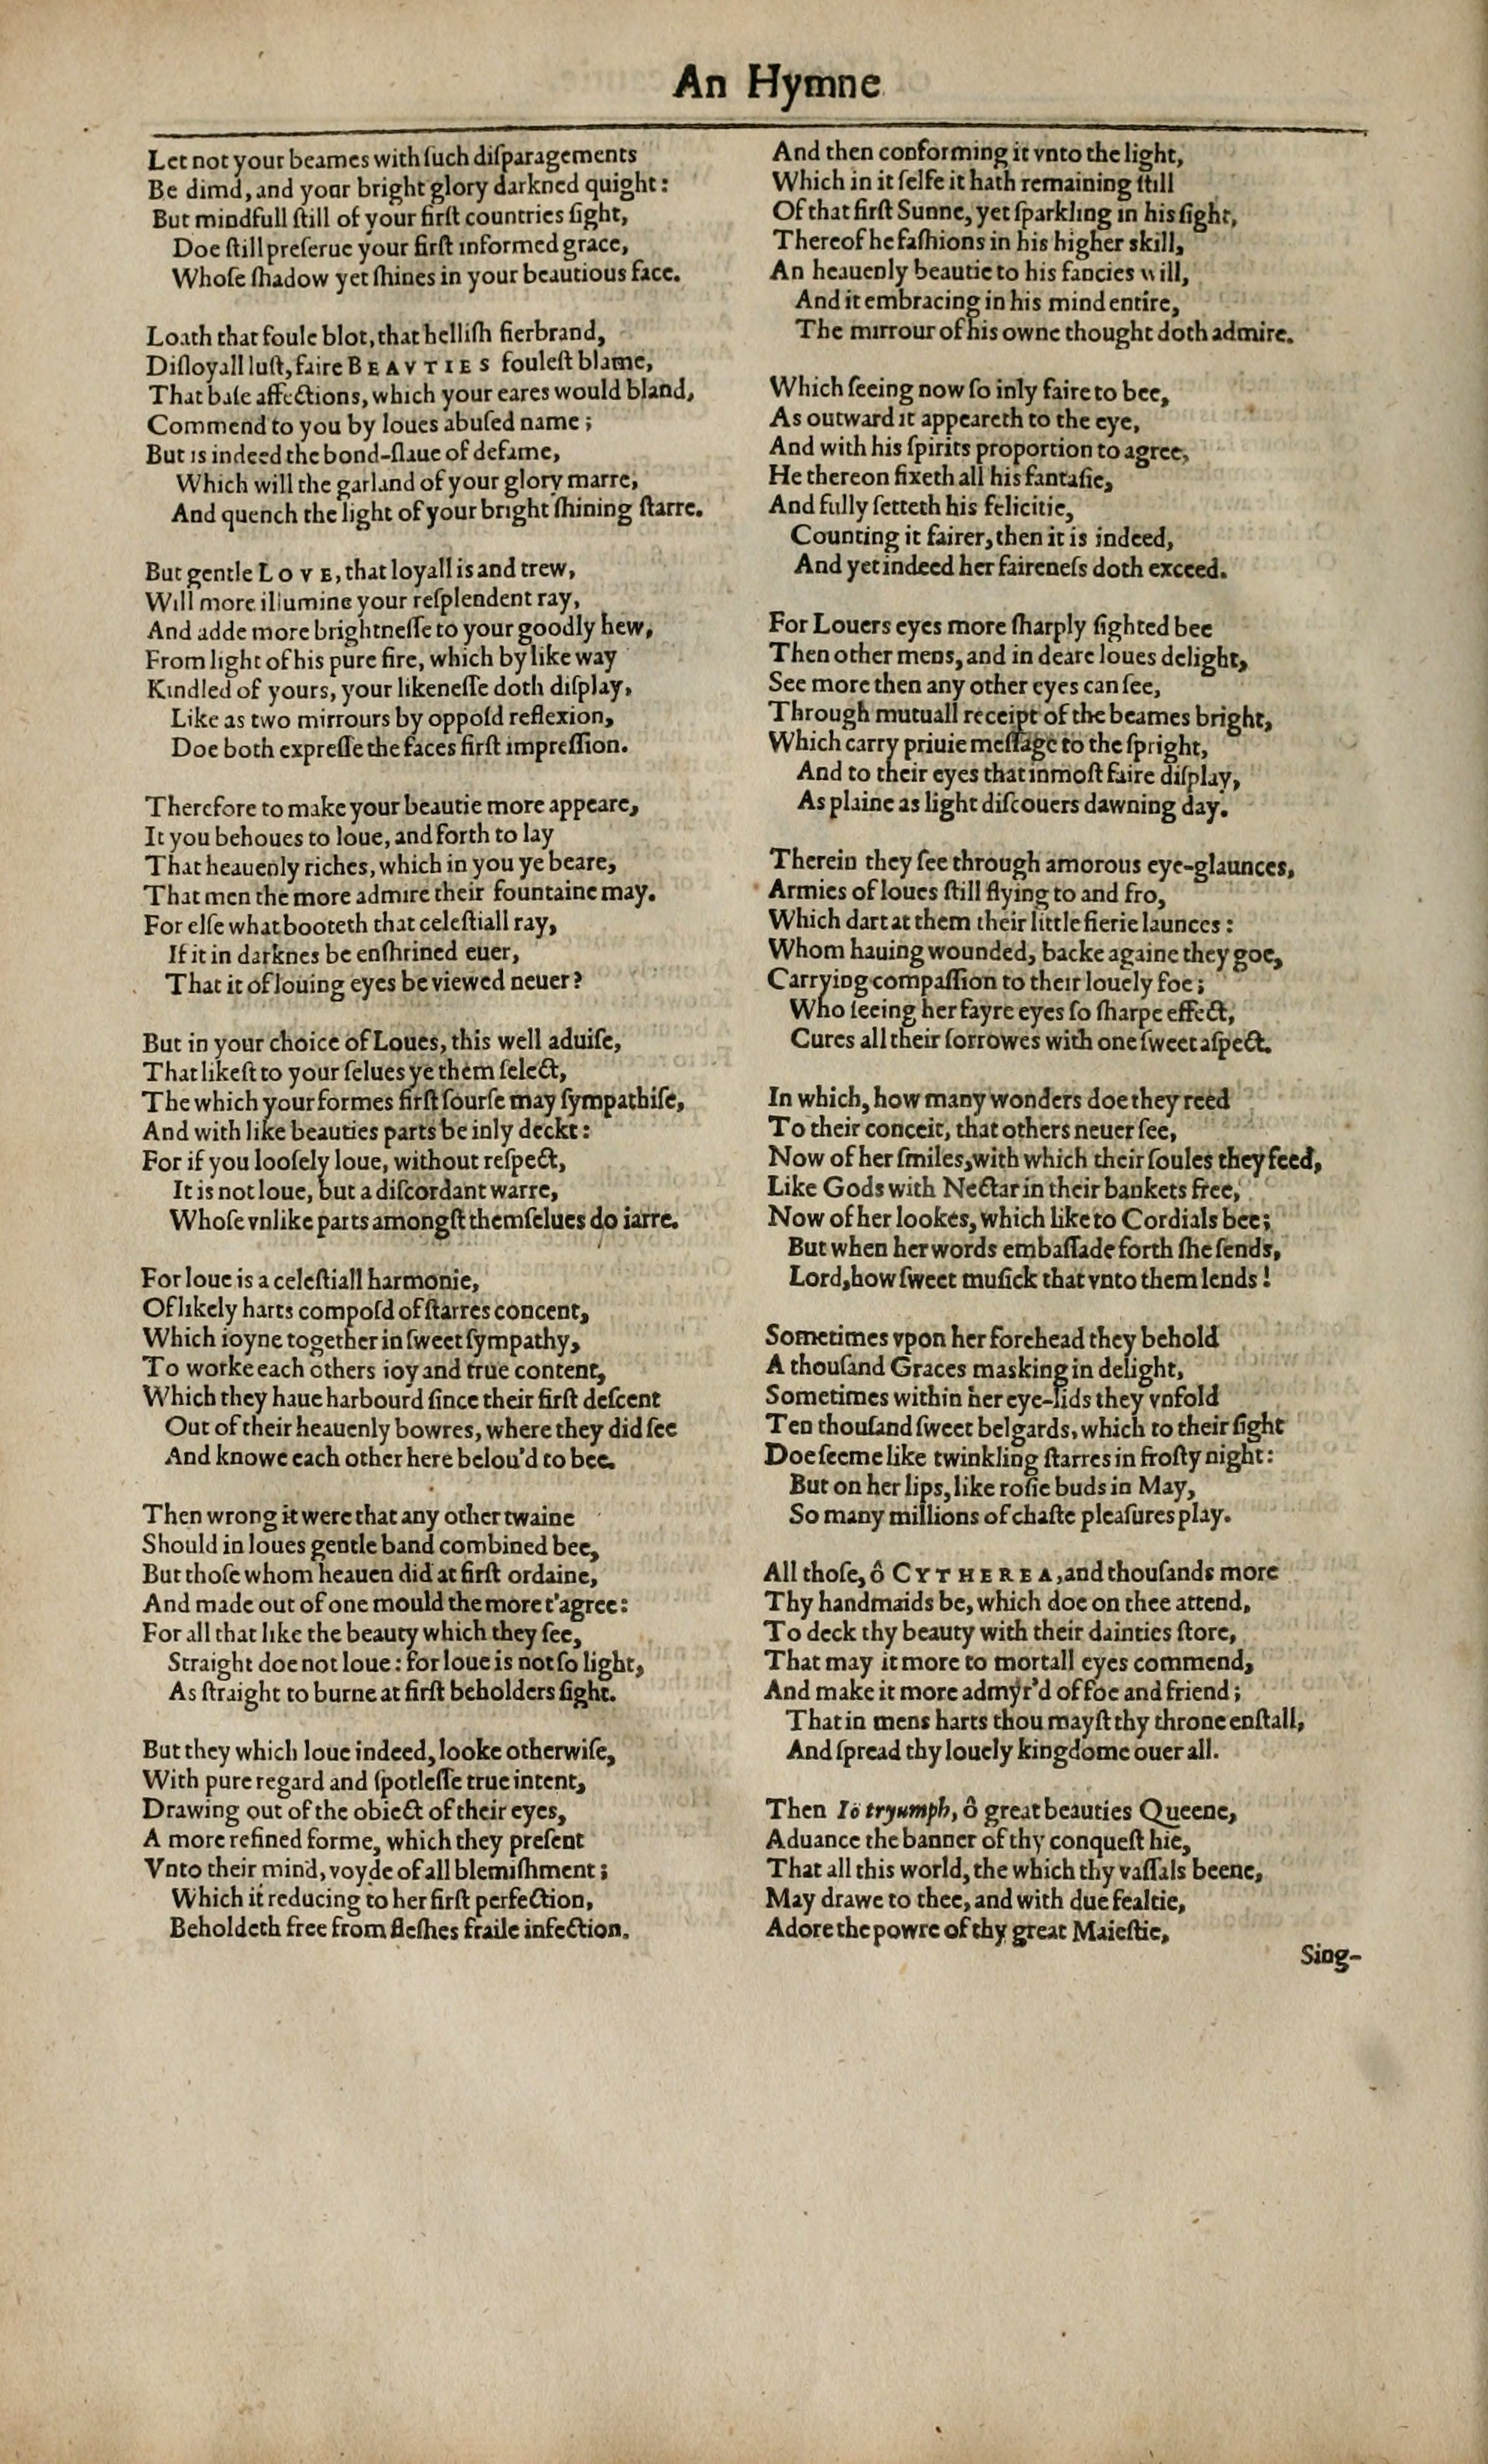 An Hymne
Let not your beames with ſuch diſparagements
Be dimd, and yoar bright glory darkned quight:
But mindfull ſtill of your firſt countries ſight,
Doe ſtill preſerue your firſt informed grace,
Whoſe ſhadow yet ſhines in your beautious face.

Loath that foule blot, that helliſh fierbrand,
Diſloyall luſt, faire BEAVTIES fouleſt blame,
That baſe affections, which your eares would bland,
Commend to you by loues abuſed name;
But is indeed the bond-ſlaue of defame,
Which will the garland of your glory marre,
And quench the light of your bright ſhining ſtarre.

But gentle LOVE, that loyall is and trew,
Will more illumine your reſplendent ray,
And adde more brightneſſe to your goodly hew,
From light of his pure fire, which by like way
Kindled of yours, your likeneſſe doth diſplay,
Like as two mirrours by oppoſd reflexion,
Doe both expreſſe the faces firſt impreſſion.

Therefore to make your beautie more appeare,
It you behoues to loue, and forth to lay
That heauenly riches, which in you ye beare,
That men the more admire their fountaine may.
For elſe what booteth that celeſtiall ray,
If it in darknes be enſhrined euer,
That it of louing eyes be viewed neuer?

But in your choice of Loues, this well aduiſe,
That likeſt to your ſelues ye them ſelect,
The which your formes firſt ſourſe may ſympathiſe,
And with like beauties parts be inly deckt:
For if you looſely loue, without reſpect,
It is not loue, but a diſcordant warre,
Whoſe vnlike parts amongſt themſelues do iarre.

For loue is a celeſtiall harmonie,
Of likely harts compoſd of ſtarres concent,
Which ioyne together in ſweet ſympathy,
To worke each others ioy and true content,
Which they haue harbourd ſince their firſt deſcent
Out of their heauenly bowres, where they did ſee
And knowe each other here belou'd to bee.

Then wrong it were that any other twaine
Should in loues gentle band combined bee,
But thoſe whom heauen did at firſt ordaine,
And made out of one mould the more t'agree:
For all that like the beauty which they ſee,
Straight doe not loue: for loue is not ſo light,
As ſtraight to burne at firſt beholders ſight.

But they which loue indeed, looke otherwiſe,
With pure regard and ſpotleſſe true intent,
Drawing out of the obiect of their eyes,
A more refined forme, which they preſent
Vnto their mind, voyde of all blemiſhment;
Which it reducing to her firſt perfection,
Beholdeth free from fleſhes fraile infection.

And then conforming it vnto the light,
Which in it ſelfe it hath remaining ſtill
Of that firſt Sunne, yet ſparkling in his ſight,
Thereof he faſhions in his higher skill,
An heauenly beautie to his fancies will,
And it embracing in his mind entire,
The mirrour of his owne thought doth admire.

Which ſeeing now ſo inly faire to bee,
As outward it appeareth to the eye,
And with his ſpirits proportion to agree,
He thereon fixeth all his fantaſie,
And fully ſetteth his felicitie,
Counting it fairer, then it is indeed,
And yet indeed her faireneſs doth exceed.

For Louers eyes more ſharply ſighted bee
Then other mens, and in deare loues delight,
See more then any other eyes can ſee,
Through mutuall receipt of the beames bright,
Which carry priuie meſſage to the ſpright,
And to their eyes that inmoſt faire diſplay,
As plaine as light diſcouers dawning day.

Therein they ſee through amorous eye-glaunces,
Armies of loues ſtill flying to and fro,
Which dart at them their little fierie launces:
Whom hauing wounded, backe againe they goe,
Carrying compaſſion to their louely foe;
Who ſeeing her fayre eyes ſo ſharpe effect,
Cures all their ſorrowes with one ſweet aſpect.

In which, how many wonders doe they reed
To their conceit, that others neuer ſee,
Now of her ſmiles, with which their ſoules they feed,
Like Gods with Nectar in their bankets free,
Now of her lookes, which like to Cordials bee;
But when her words embaſſade forth ſhe ſends,
Lord, how ſweet muſick that vnto them lends!

Sometimes vpon her forehead they behold
A thouſand Graces masking in delight,
Sometimes within her eye-lids they vnfold
Ten thouſand ſweet belgards, which to their ſight
Doe ſeeme like twinkling ſtarres in froſty night:
But on her lips, like roſie buds in May,
So many millions of chaſte pleaſures play.

All thoſe, ô CYTHEREA, and thouſands more
Thy handmaids be, which doe on thee attend,
To deck thy beauty with their dainties ſtore,
That may it more to mortall eyes commend,
And make it more admyr'd of foe and friend;
That in mens harts thou mayſt thy throne enſtall,
And ſpread thy louely kingdome ouer all.

Then Iö tryumph, ô great beauties Queene,
Aduance the banner of thy conqueſt hie,
That all this world, the which thy vaſſals beene,
May drawe to thee, and with due fealtie,
Adore the powre of thy great Maieſtie,
Sing-